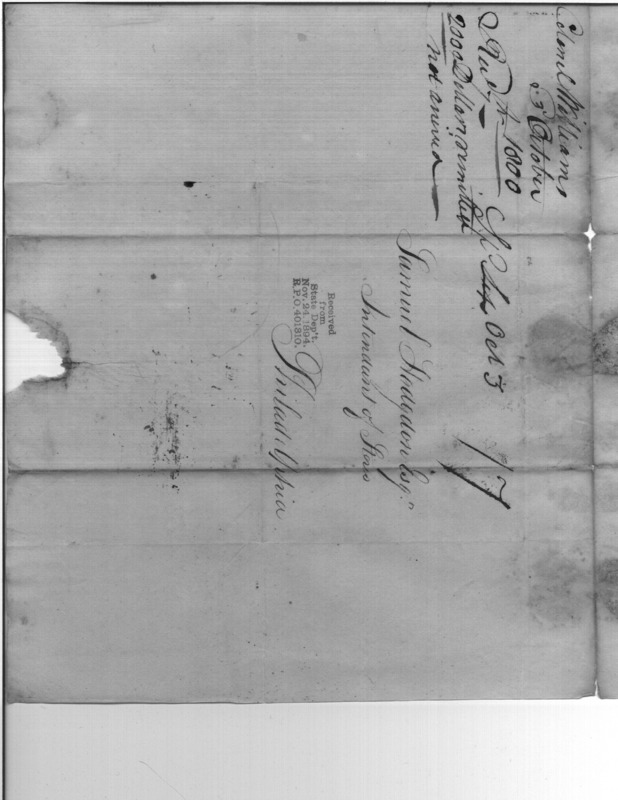 Colonel Williams
3 October
1800
2000 Dollars remitted
not answered
Oct 3
17
Samuel Hodgdon Esqr
Intendant of Stores
Philadelphia
Received
from
State Dep't.
Nov. 24, 1894.
R.P.O. 401810.